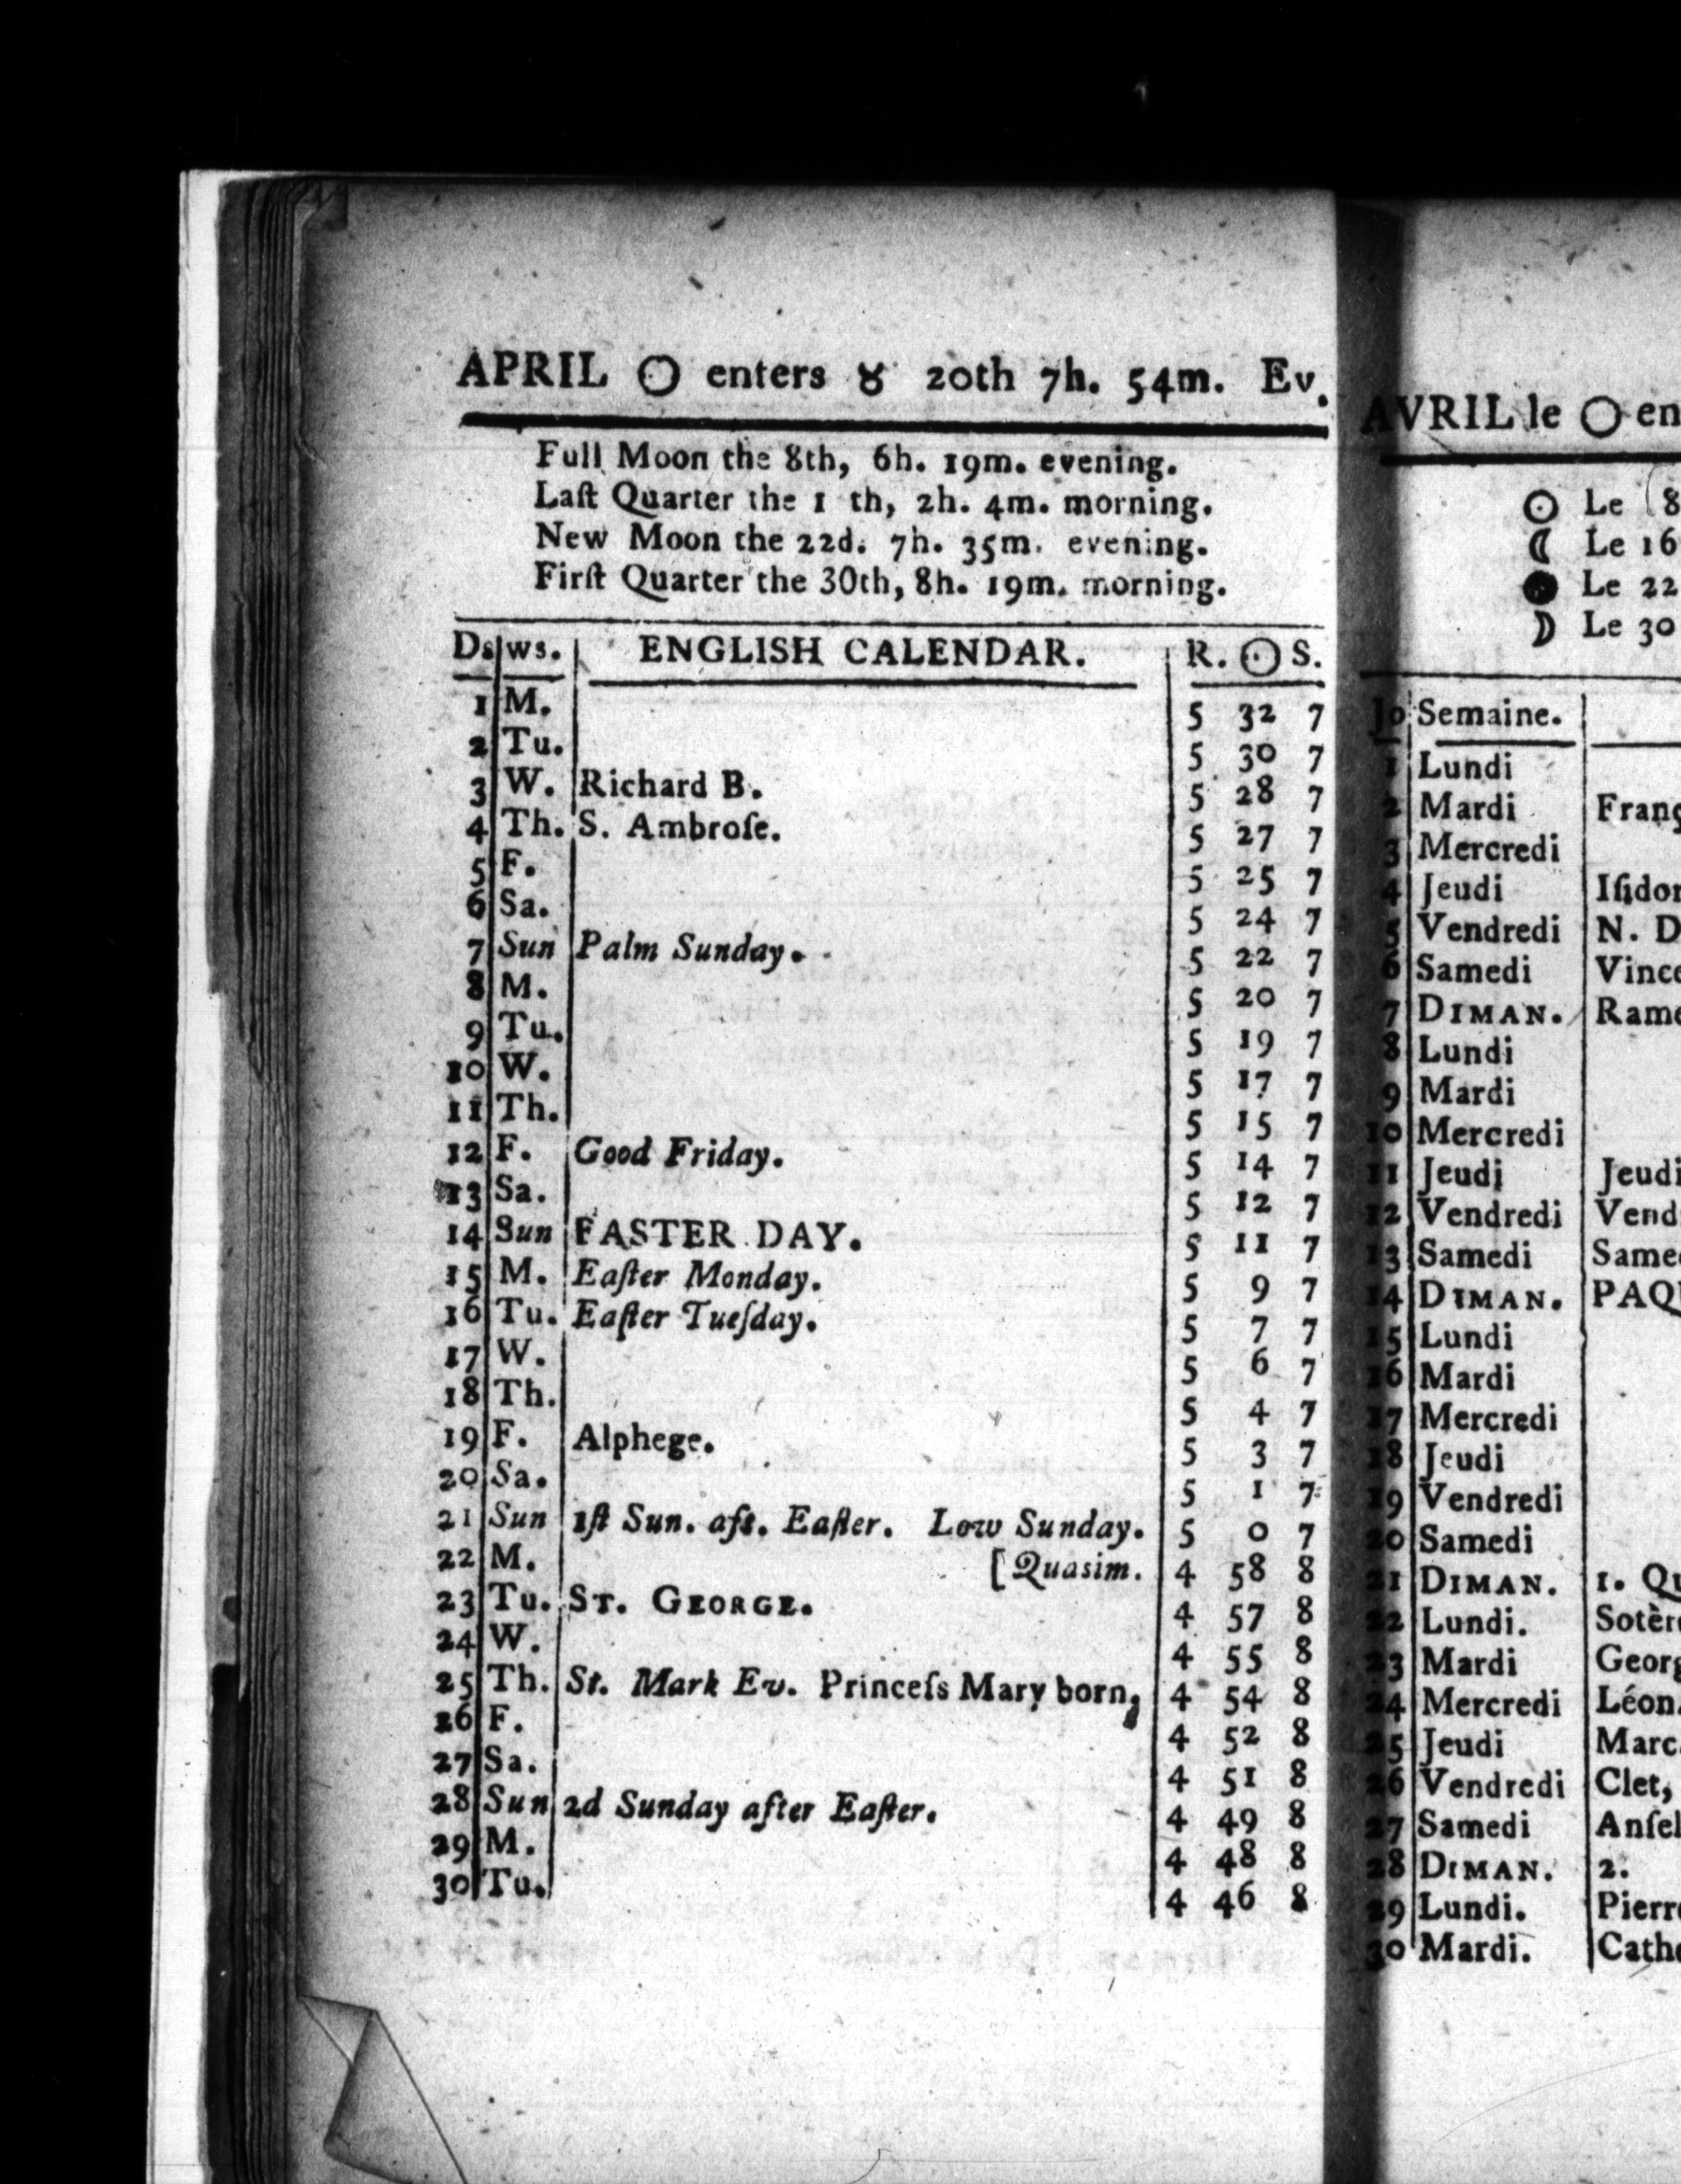 APRIL ☉ enters ♉ 20th 7h. 54m. Ev.
Full Moon the 8th, 6h. 19m. evening.
Laſt Quarter the 1 th, 2h. 4m. morning.
New Moon the 22d. 7h. 35m. evening.
Firſt Quarter the 30th, 8h. 19m. morning.
Ds ws. ENGLISH CALENDAR. R. ☉ S.
1 M. 5 32 7
2 Tu. 5 30 7
3 W. Richard B. 5 28 7
4 Th. S. Ambroſe. 5 27 7
5 F. 5 25 7
6 Sa. 5 24 7
7 Sun Palm Sunday. 5 22 7
8 M. 5 20 7
9 Tu. 5 19 7
10 W. 5 17 7
11 Th. 5 15 7
12 F. Good Friday. 5 14 7
13 Sa. 5 12 7
14 Sun EASTER DAY. 5 11 7
15 M. Eaſter Monday. 5 9 7
16 Tu. Eaſter Tueſday. 5 7 7
17 W. 5 6 7
18 Th. 5 4 7
19 F. Alphege. 5 3 7
20 Sa. 5 1 7
21 Sun 1ſt Sun. aft. Eaſter. Low Sunday. 5 0 7
22 M. [Quasim. 4 58 8
23 Tu. ST. GEORGE. 4 57 8
24 W. 4 55 8
25 Th. St. Mark Ev. Princeſs Mary born, 4 54 8
26 F. 4 52 8
27 Sa. 4 51 8
28 Sun 2d Sunday after Eaſter. 4 49 8
29 M. 4 48 8
30 Tu. 4 46 8
AVRIL le ☉ en
☉ Le 8
☾ Le 16
● Le 22
☽ Le 30
Jo Semaine.
1 Lundi
2 Mardi Franç
3 Mercredi
4 Jeudi Iſidor
5 Vendredi N. D
6 Samedi Vince
7 DIMAN. Rame
8 Lundi
9 Mardi
10 Mercredi
11 Jeudi Jeudi
12 Vendredi Vend
13 Samedi Same
14 DIMAN. PAQU
15 Lundi
16 Mardi
17 Mercredi
18 Jeudi
19 Vendredi
20 Samedi
21 DIMAN. 1. Qu
22 Lundi. Sotèr
23 Mardi Georg
24 Mercredi Léon.
25 Jeudi Marc
26 Vendredi Clet,
27 Samedi Anſel
28 DIMAN. 2.
29 Lundi. Pierr
30 Mardi. Cathe